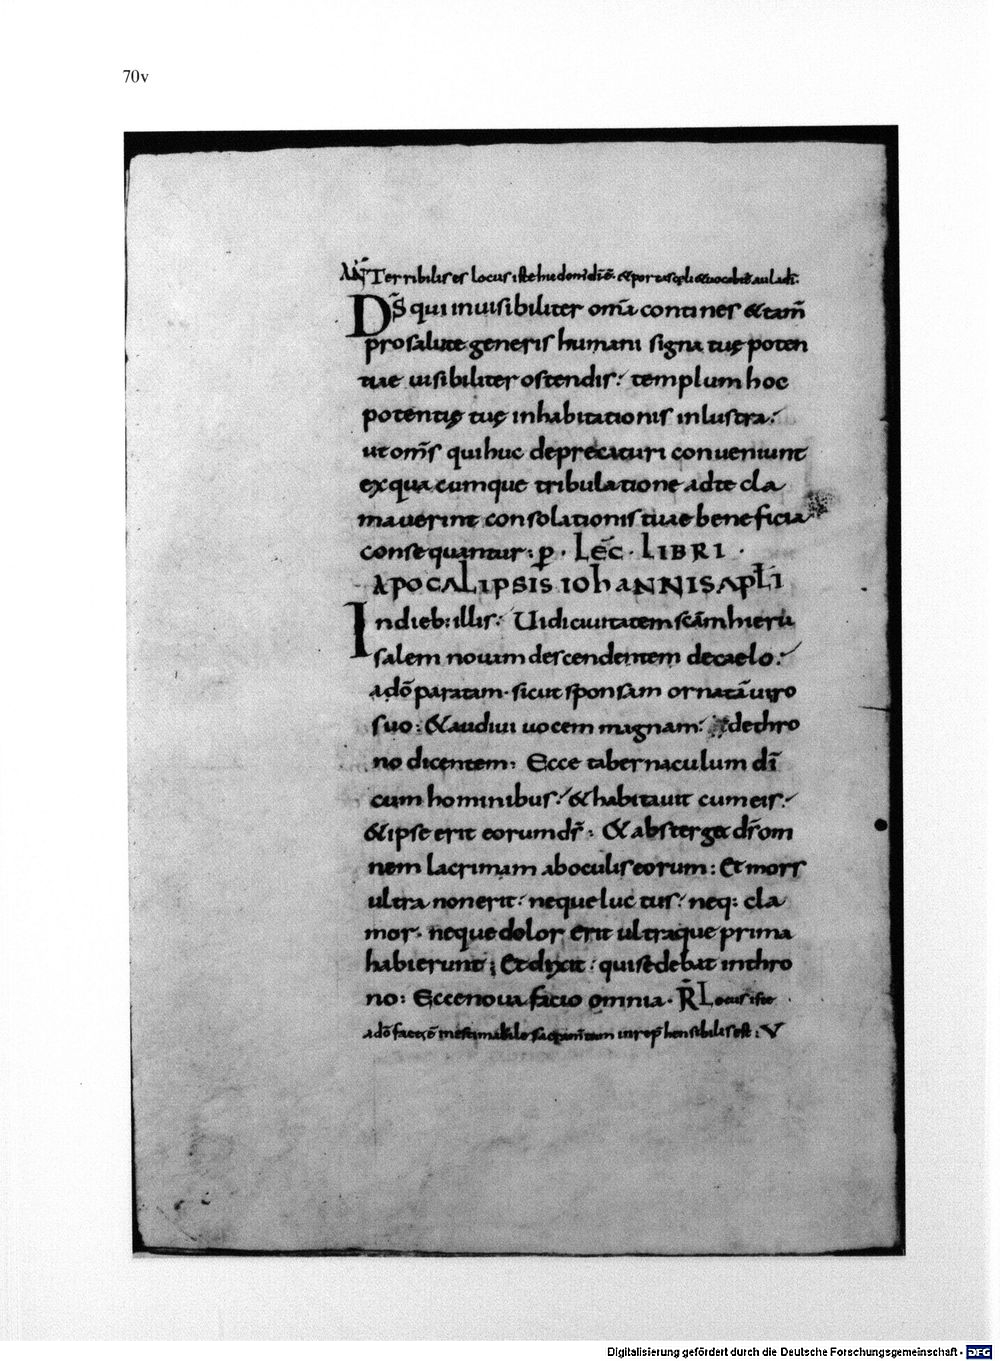 70v
AN Terribilis es locus iste hic domꝰ dī ē. & porta cęli & uocabit̄ aula di.
DS̄ qui inuisibiliter om̄a contines & tam̄
pro salute generis humani signa tuę poten
tiae uisibiliter ostendis: templum hoc
potentię tuę inhabitationis inlustra:
ut om̄s qui huc deprecaturi conueniunt
ex quacumque tribulatione ad te cla
mauerint consolationis tuae beneficia
consequantur: p̱. LEC̄. LIBRI.
APOCALIPSIS IOhANNIS APŁI
In dieb: illis: Uidi ciuitatem sc̄am hieru
salem nouam descendentem de caelo:
a dō paratam. sicut sponsam ornatā uiro
suo: & audiui uocem magnam: de thro
no dicentem: Ecce tabernaculum dī
cum hominibus: & habitauit cum eis:
& ipse erit eorum ds̄: & absterg& ds̄ om
nem lacrimam ab oculis eorum: Et mors
ultra non erit: neque luctus: neq: cla
mor. neque dolor erit ultra que prima
habierunt; Et dixit: qui sedebat in thro
no: Ecce noua facio omnia. R̄ Locus iste
a dō fact; ē inestimabile sacram̄tum inrep̄hensibilis est: V
Digitalisierung gefördert durch die Deutsche Forschungsgemeinschaft - DFG